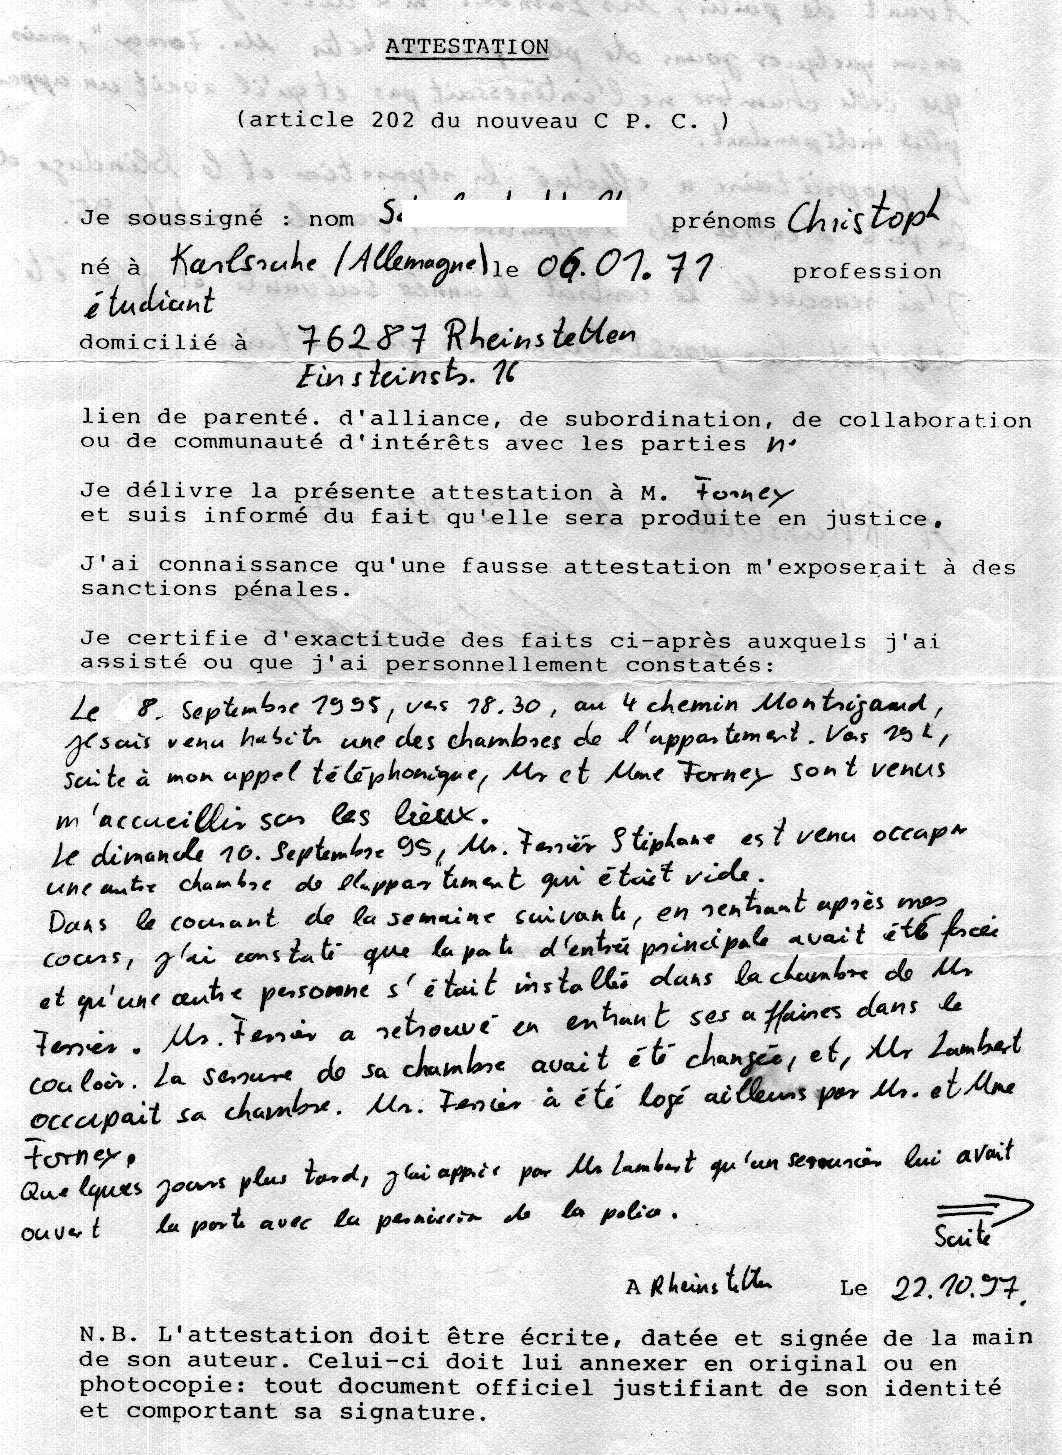 ATTESTATION
(article 202 du nouveau C P. C. )
Je soussigné : nom prénoms Christoph
né à Karlsruhe (Allemagne) le 06.01.71 profession
étudiant
domicilié à 76287 Rheinstetten
Einsteinstr. 16
lien de parenté. d'alliance, de subordination, de collaboration
ou de communauté d'intérêts avec les parties
Je délivre la présente attestation à M. Forney
et suis informé du fait qu'elle sera produite en justice.
J'ai connaissance qu'une fausse attestation m'exposerait à des
sanctions pénales.
Je certifie d'exactitude des faits ci-après auxquels j'ai
assisté ou que j'ai personnellement constatés:
Le 8. Septembre 1995, vers 18.30, au 4 chemin Montrigaud,
je suis venu habiter une des chambres de l'appartement. Vers 19h,
suite à mon appel téléphonique, Mr et Mme Forney sont venus
m'accueillir sur les lieux.
Le dimanche 10. Septembre 95, Mr. Ferrier Stéphane est venu occuper
une autre chambre de l'appartement qui était vide.
Dans le courant de la semaine suivante, en rentrant après mes
cours, j'ai constaté que la porte d'entrée principale avait été forcée
et qu'une autre personne s'était installée dans la chambre de Mr
Ferrier. Mr. Ferrier a retrouvé en entrant ses affaires dans le
couloir. La serrure de sa chambre avait été changée, et, Mr Lambert
occupait sa chambre. Mr. Ferrier à été logé ailleurs par Mr. et Mme
Forney.
Quelques jours plus tard, j'ai appris par Mr Lambert qu'un serrurier lui avait
ouvert la porte avec la permission de la police.
Suite
A Rheinstetten Le 22.10.97.
N.B. L'attestation doit être écrite, datée et signée de la main
de son auteur. Celui-ci doit lui annexer en original ou en
photocopie: tout document officiel justifiant de son identité
et comportant sa signature.